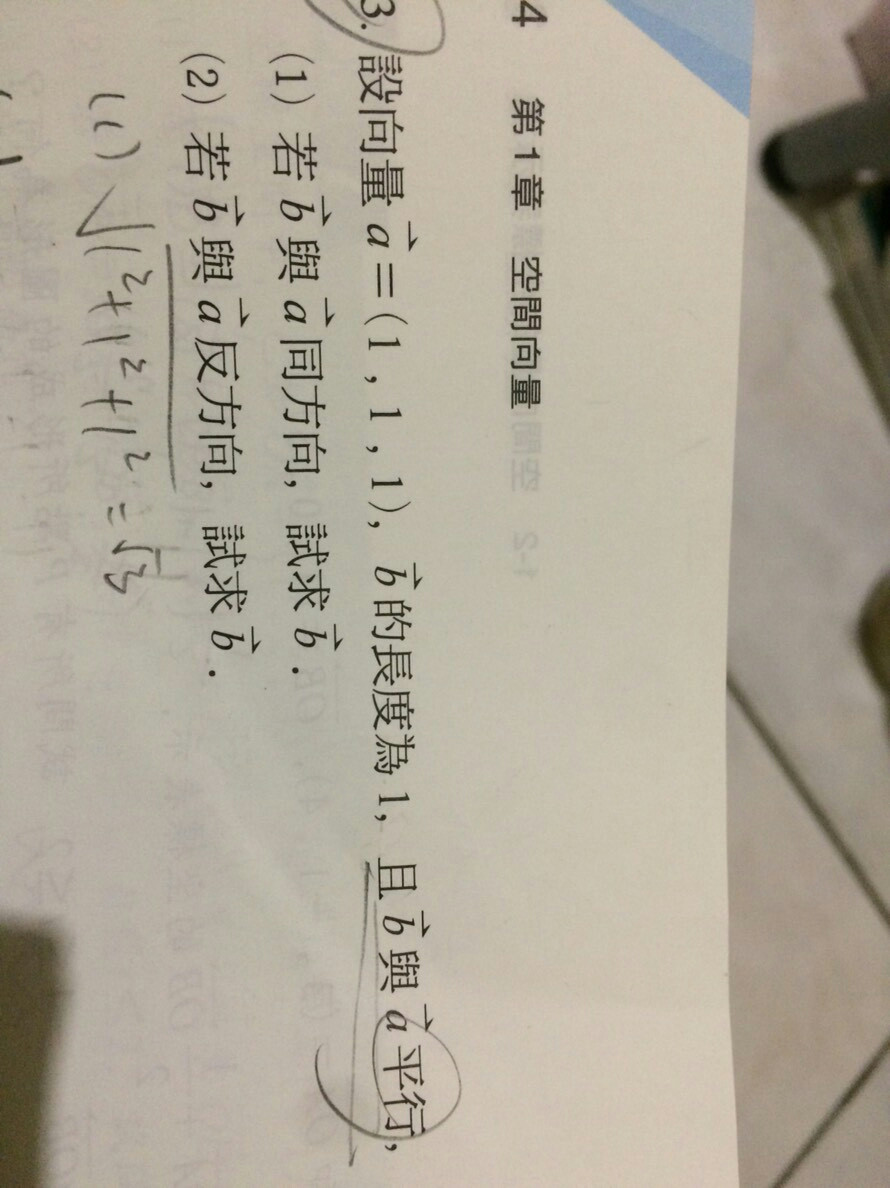 4 第1章 空間向量
3. 設向量 a⃗=(1,1,1), b⃗的長度為1, 且b⃗與a⃗平行,
(1) 若b⃗與a⃗同方向, 試求b⃗.
(2) 若b⃗與a⃗反方向, 試求b⃗.
(1) √1²+1²+1² = √3